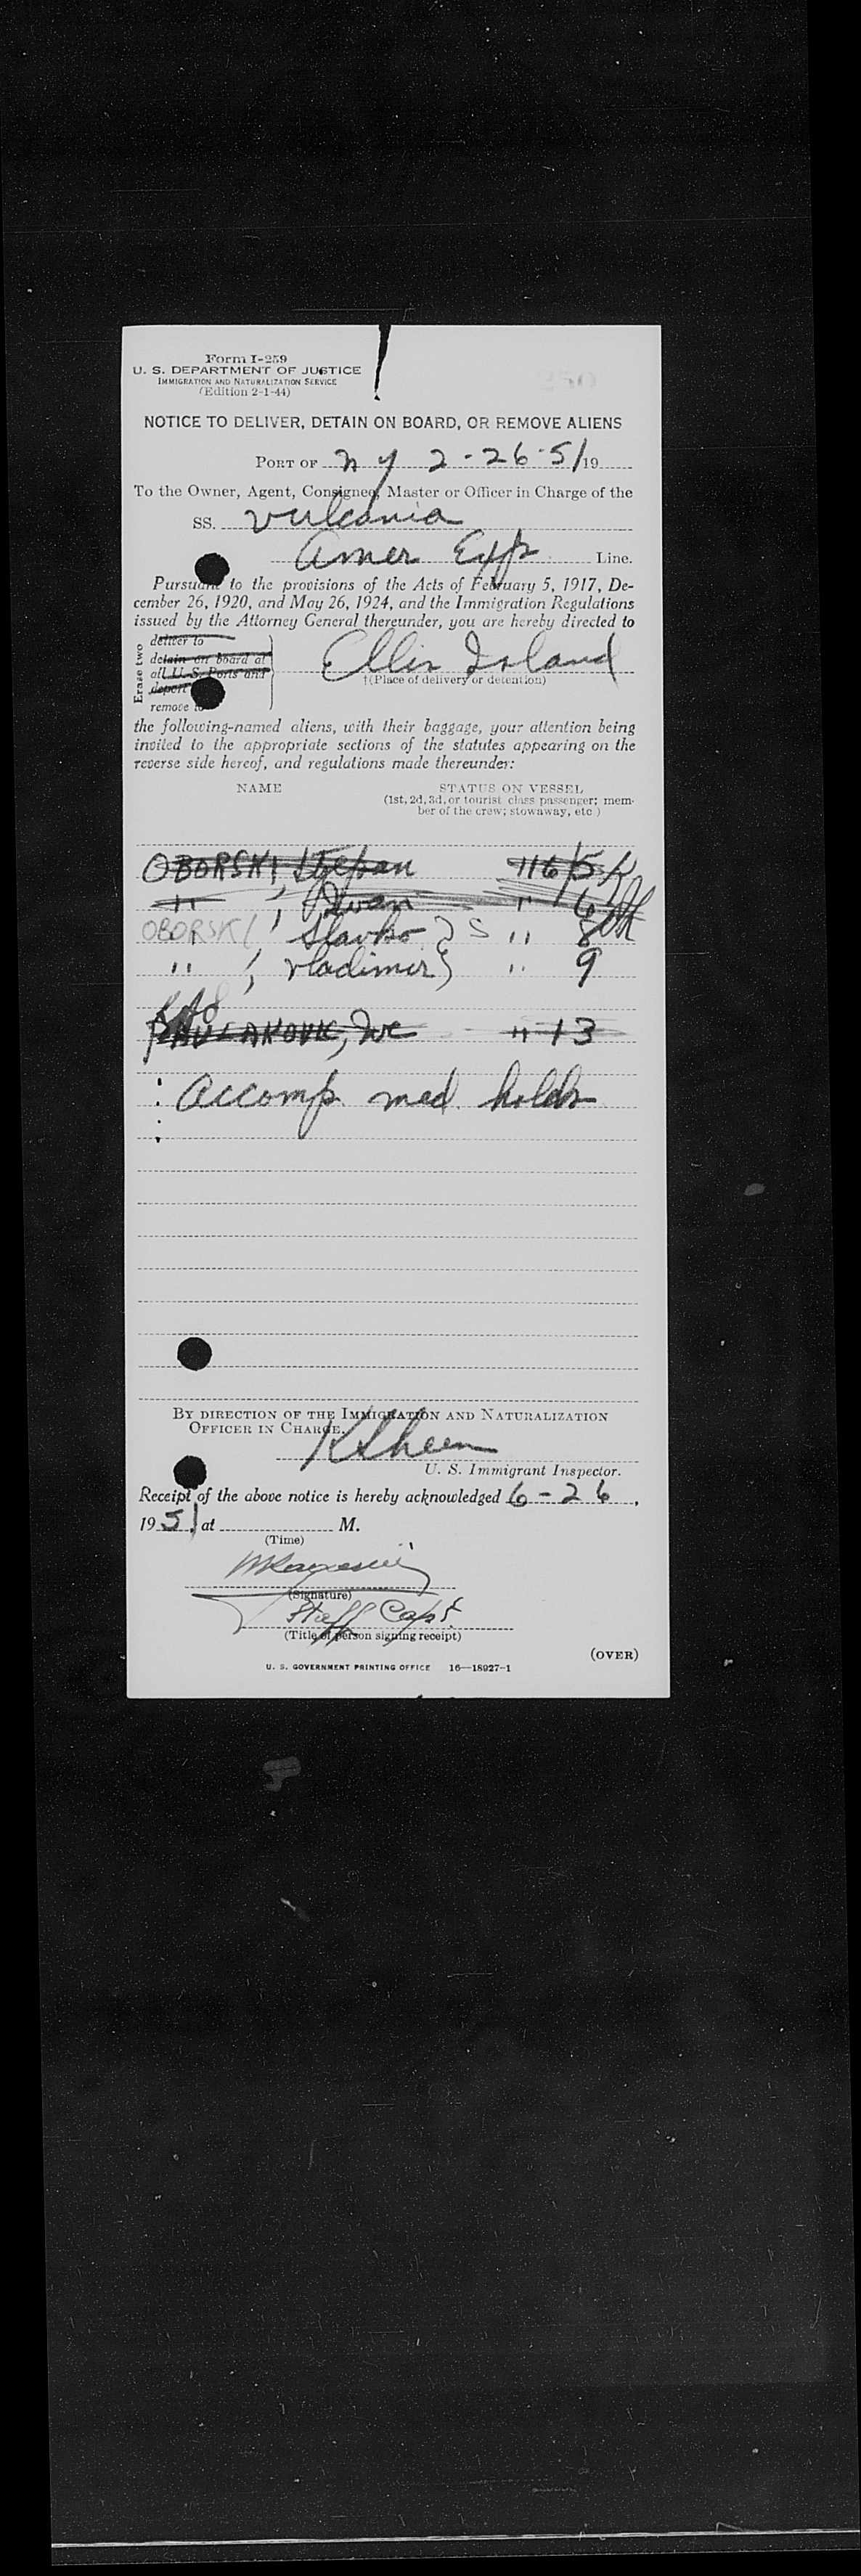 Form I-259
U. S. DEPARTMENT OF JUSTICE
IMMIGRATION AND NATURALIZATION SERVICE
(Edition 2-1-44)
NOTICE TO DELIVER, DETAIN ON BOARD, OR REMOVE ALIENS
PORT OF N Y 2-26-51 19
To the Owner, Agent, Consignee, Master or Officer in Charge of the
SS. Vulcania
Amer Exp Line.
Pursuant to the provisions of the Acts of February 5, 1917, De-
cember 26, 1920, and May 26, 1924, and the Immigration Regulations
issued by the Attorney General thereunder, you are hereby directed to
Erase two
deliver to
detain on board at
all U. S. Ports and
deport
remove to
Ellis Island
†(Place of delivery or detention)
the following-named aliens, with their baggage, your attention being
invited to the appropriate sections of the statutes appearing on the
reverse side hereof, and regulations made thereunder:
NAME STATUS ON VESSEL
(1st, 2d, 3d, or tourist class passenger; mem-
ber of the crew; stowaway, etc.)
OBORSKI, Stjepan 116/5
" , Ivan " 6
OBORSKI Slavko } S " 8
" , Vladimir } " 9
" 13
Accomp. med. holds
BY DIRECTION OF THE IMMIGRATION AND NATURALIZATION
OFFICER IN CHARGE.
U. S. Immigrant Inspector.
Receipt of the above notice is hereby acknowledged 6-26,
1951 at M.
(Time)
(Signature)
Staff Capt.
(Title of person signing receipt)
(OVER)
U. S. GOVERNMENT PRINTING OFFICE 16—18927-1